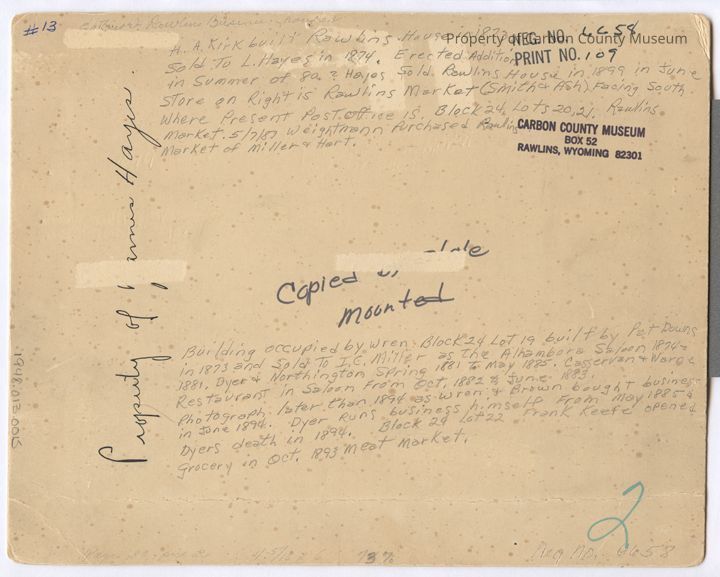 #13
Rawlins Business houses
Property of Carbon County Museum
NEG. NO. 6658
PRINT NO. 109
H. A. Kirk built Rawlins House in 1873
Sold To L. Hayes in 1874. Erected Addition
in Summer of 80. ? Hayes Sold Rawlins House in 1899 in June
Store on Right is Rawlins Market (Smith & Ash) Facing South
Where Present Post office is. Block 24, Lots 20, 21. Rawlins
Market. 5/7/87 Weightmann Purchased Rawlins
Market of Miller & Hart.
CARBON COUNTY MUSEUM
BOX 52
RAWLINS, WYOMING 82301
Property of James Hayes.
Copied
Mounted
1948.012.0015
Building occupied by Wren Block 24 Lot 19 built by Pat Downs
in 1873 and Sold To I.C. Miller as The Alhambora Saloon 1874-
1881. Dyer & Northington Spring 1881 To May 1885. Casservan & Warde
Restaurant in Saloon From Oct, 1882 To June 1883
Photograph later than 1894 as Wren & Brown bought business
in June 1894. Dyer Runs business himself From May 1885 &
Dyers death in 1894. Block 24 Lot 22 Frank Keefe opened
Grocery in Oct. 1893 Meat Market.
2
73%
Neg No. 6658